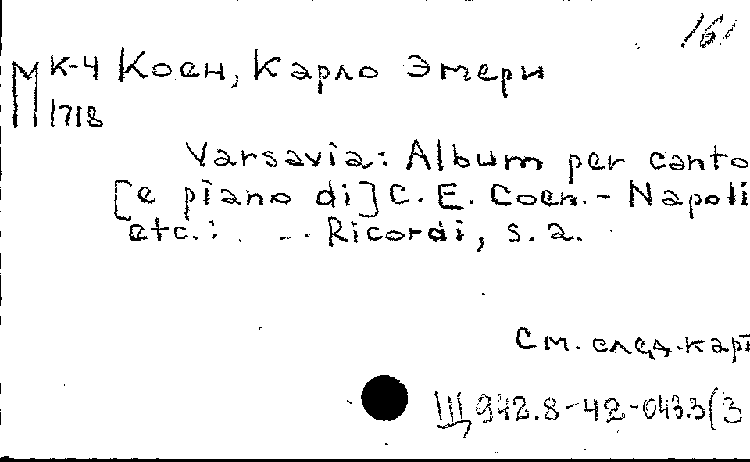 161
М К-4 Коен, Карло Эмери
1718
Varsavia: Album per canto
[e piano di] C. E. Coen. - Napoli
etc.: Ricordi, s. a.
См. след. карт
Щ 942.8-42-043.3(3